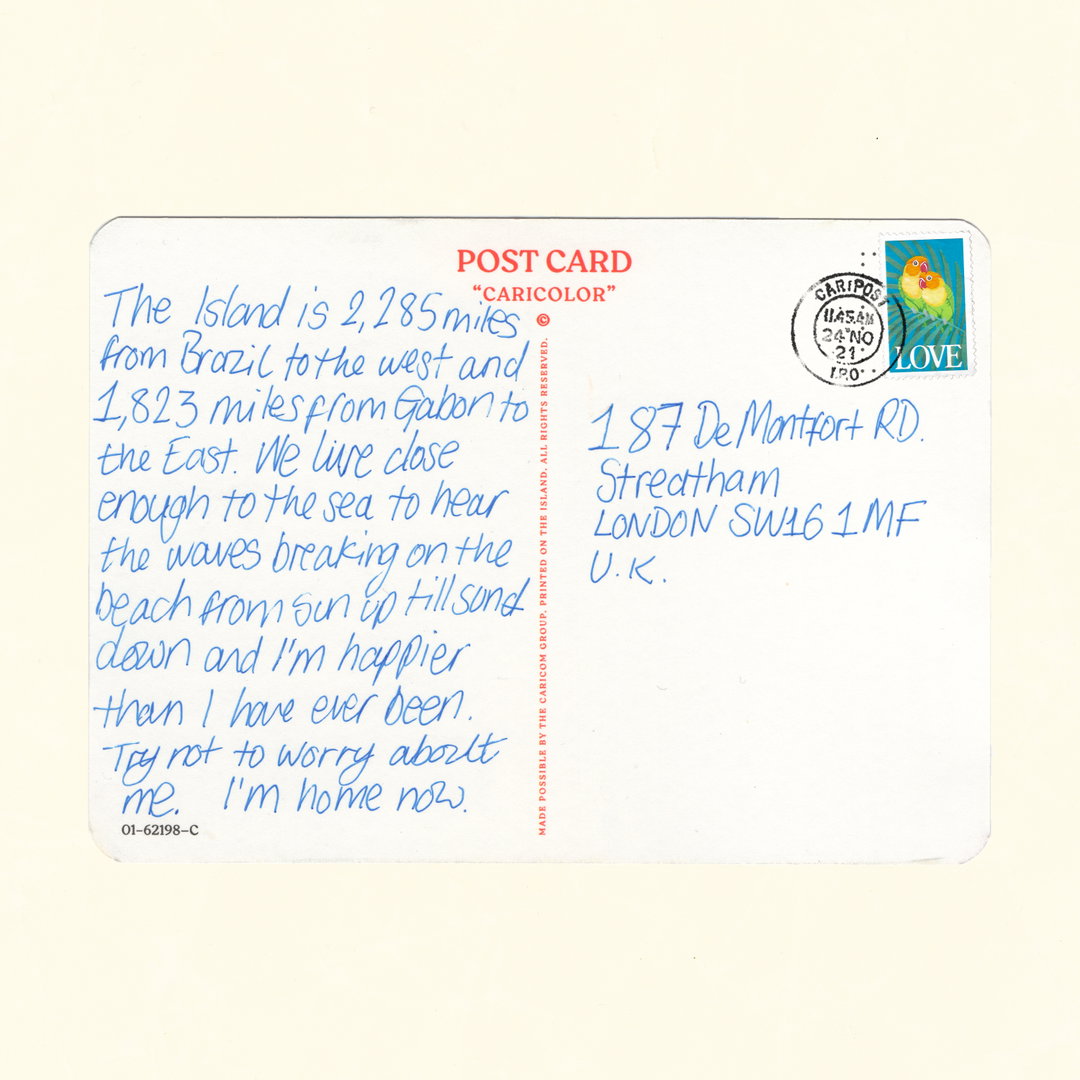 POST CARD
"CARICOLOR"
©
The Island is 2,285 miles
from Brazil to the west and
1,823 miles from Gabon to
the East. We live close
enough to the sea to hear
the waves breaking on the
beach from sun up till sund
down and I'm happier
than I have ever been.
Try not to worry about
me. I'm home now.
01-62198-C
MADE POSSIBLE BY THE CARICOM GROUP. PRINTED ON THE ISLAND. ALL RIGHTS RESERVED.
CARIPOST
11.45.AM
24 NO
21
I.P.O
LOVE
187 De Montfort RD.
Streatham
LONDON SW16 1MF
U.K.